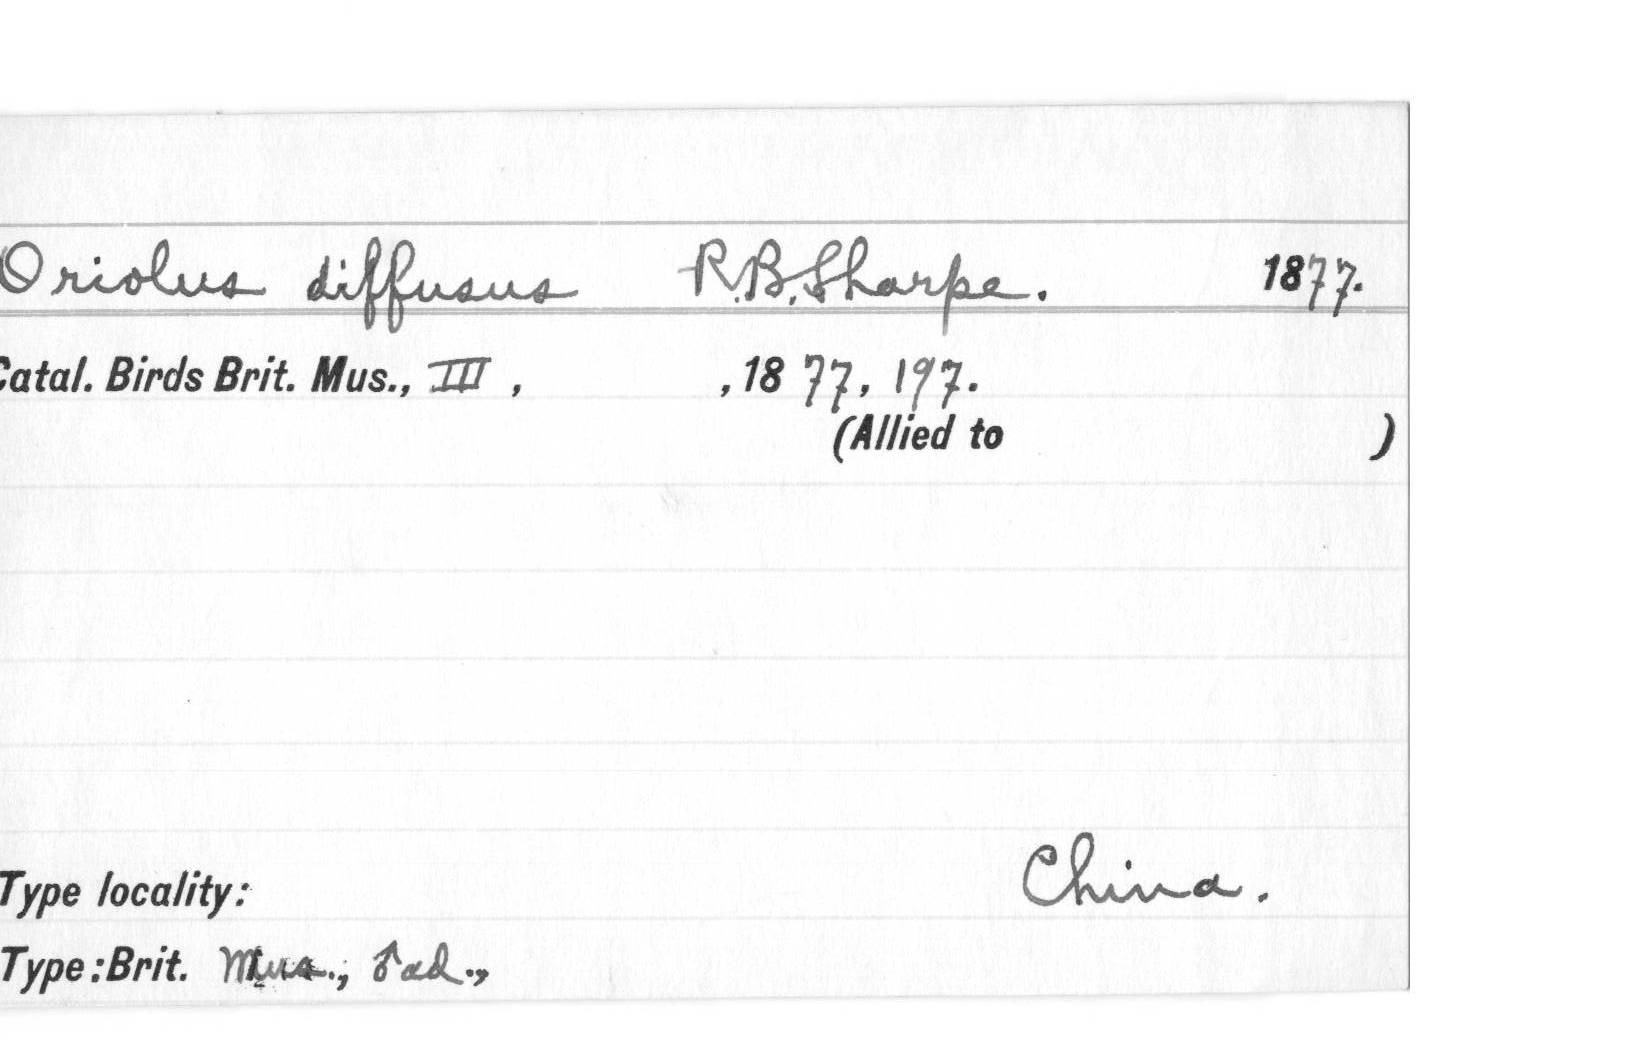 Oriolus diffusus R.B.Sharpe. 1877.
Catal. Birds Brit. Mus., III , , 1877, 197.
(Allied to )
Type locality: China.
Type:Brit. Mus., ♂ad.,